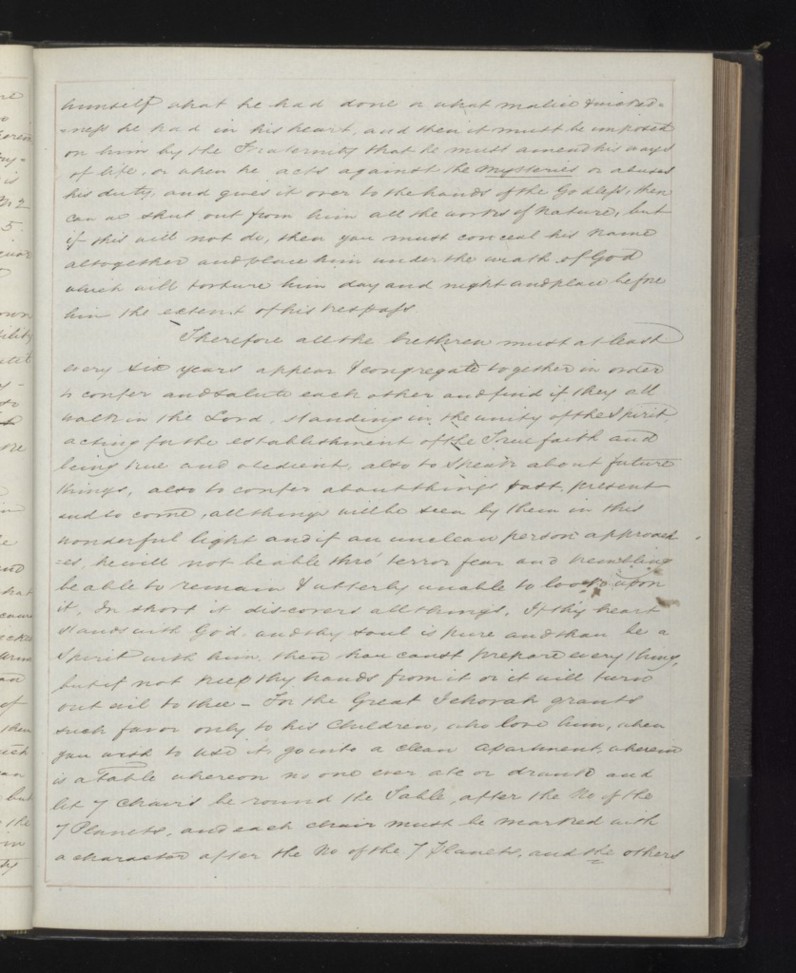 himself what he had done or what malice & wicked-
-ness he had in his heart, and then it must be imposed
on him by the Fraternity that he must amend his ways
of life, or when he acts against the mysteries or abuses
his duty, and gives it over to the hands of the Godless, then
can we shut out from him all the works of Nature, but
if this will not do, then you must conceal his Name
altogether and place him under the wrath of God
which will torture him day and night and place before
him the extent of his trespass
Therefore all the brethren must at least
every six years appear & congregate together in order
to confer and salute each other and find if they all
walk in the Lord, standing in the unity of the Spirit,
acting for the establishment of the True faith and
being true and obedient, also to speak about future
things, also to confer about things past, present
and to come, all things will be seen by them in this
wonderful light and if an unclean person approach
-es, he will not be able thro' terror fear and trembling
be able to remain & utterly unable to look upon
it, In short it discovers all things, If thy heart
stands with God, and thy soul is pure and thou be a
Spirit with him, then thou canst prepare every thing,
but if not keep thy hands from it or it will turn
out evil to thee - For the Great Jehovah grants
such favor only to his Children, who love him, when
you wish to use it, go into a clean apartment, wherein
is a Table whereon no one ever ate or drank and
let 7 Chairs be round the Table, after the No of the
7 Planets, and each chair must be marked with
a character after the No of the 7 Planets, and the others